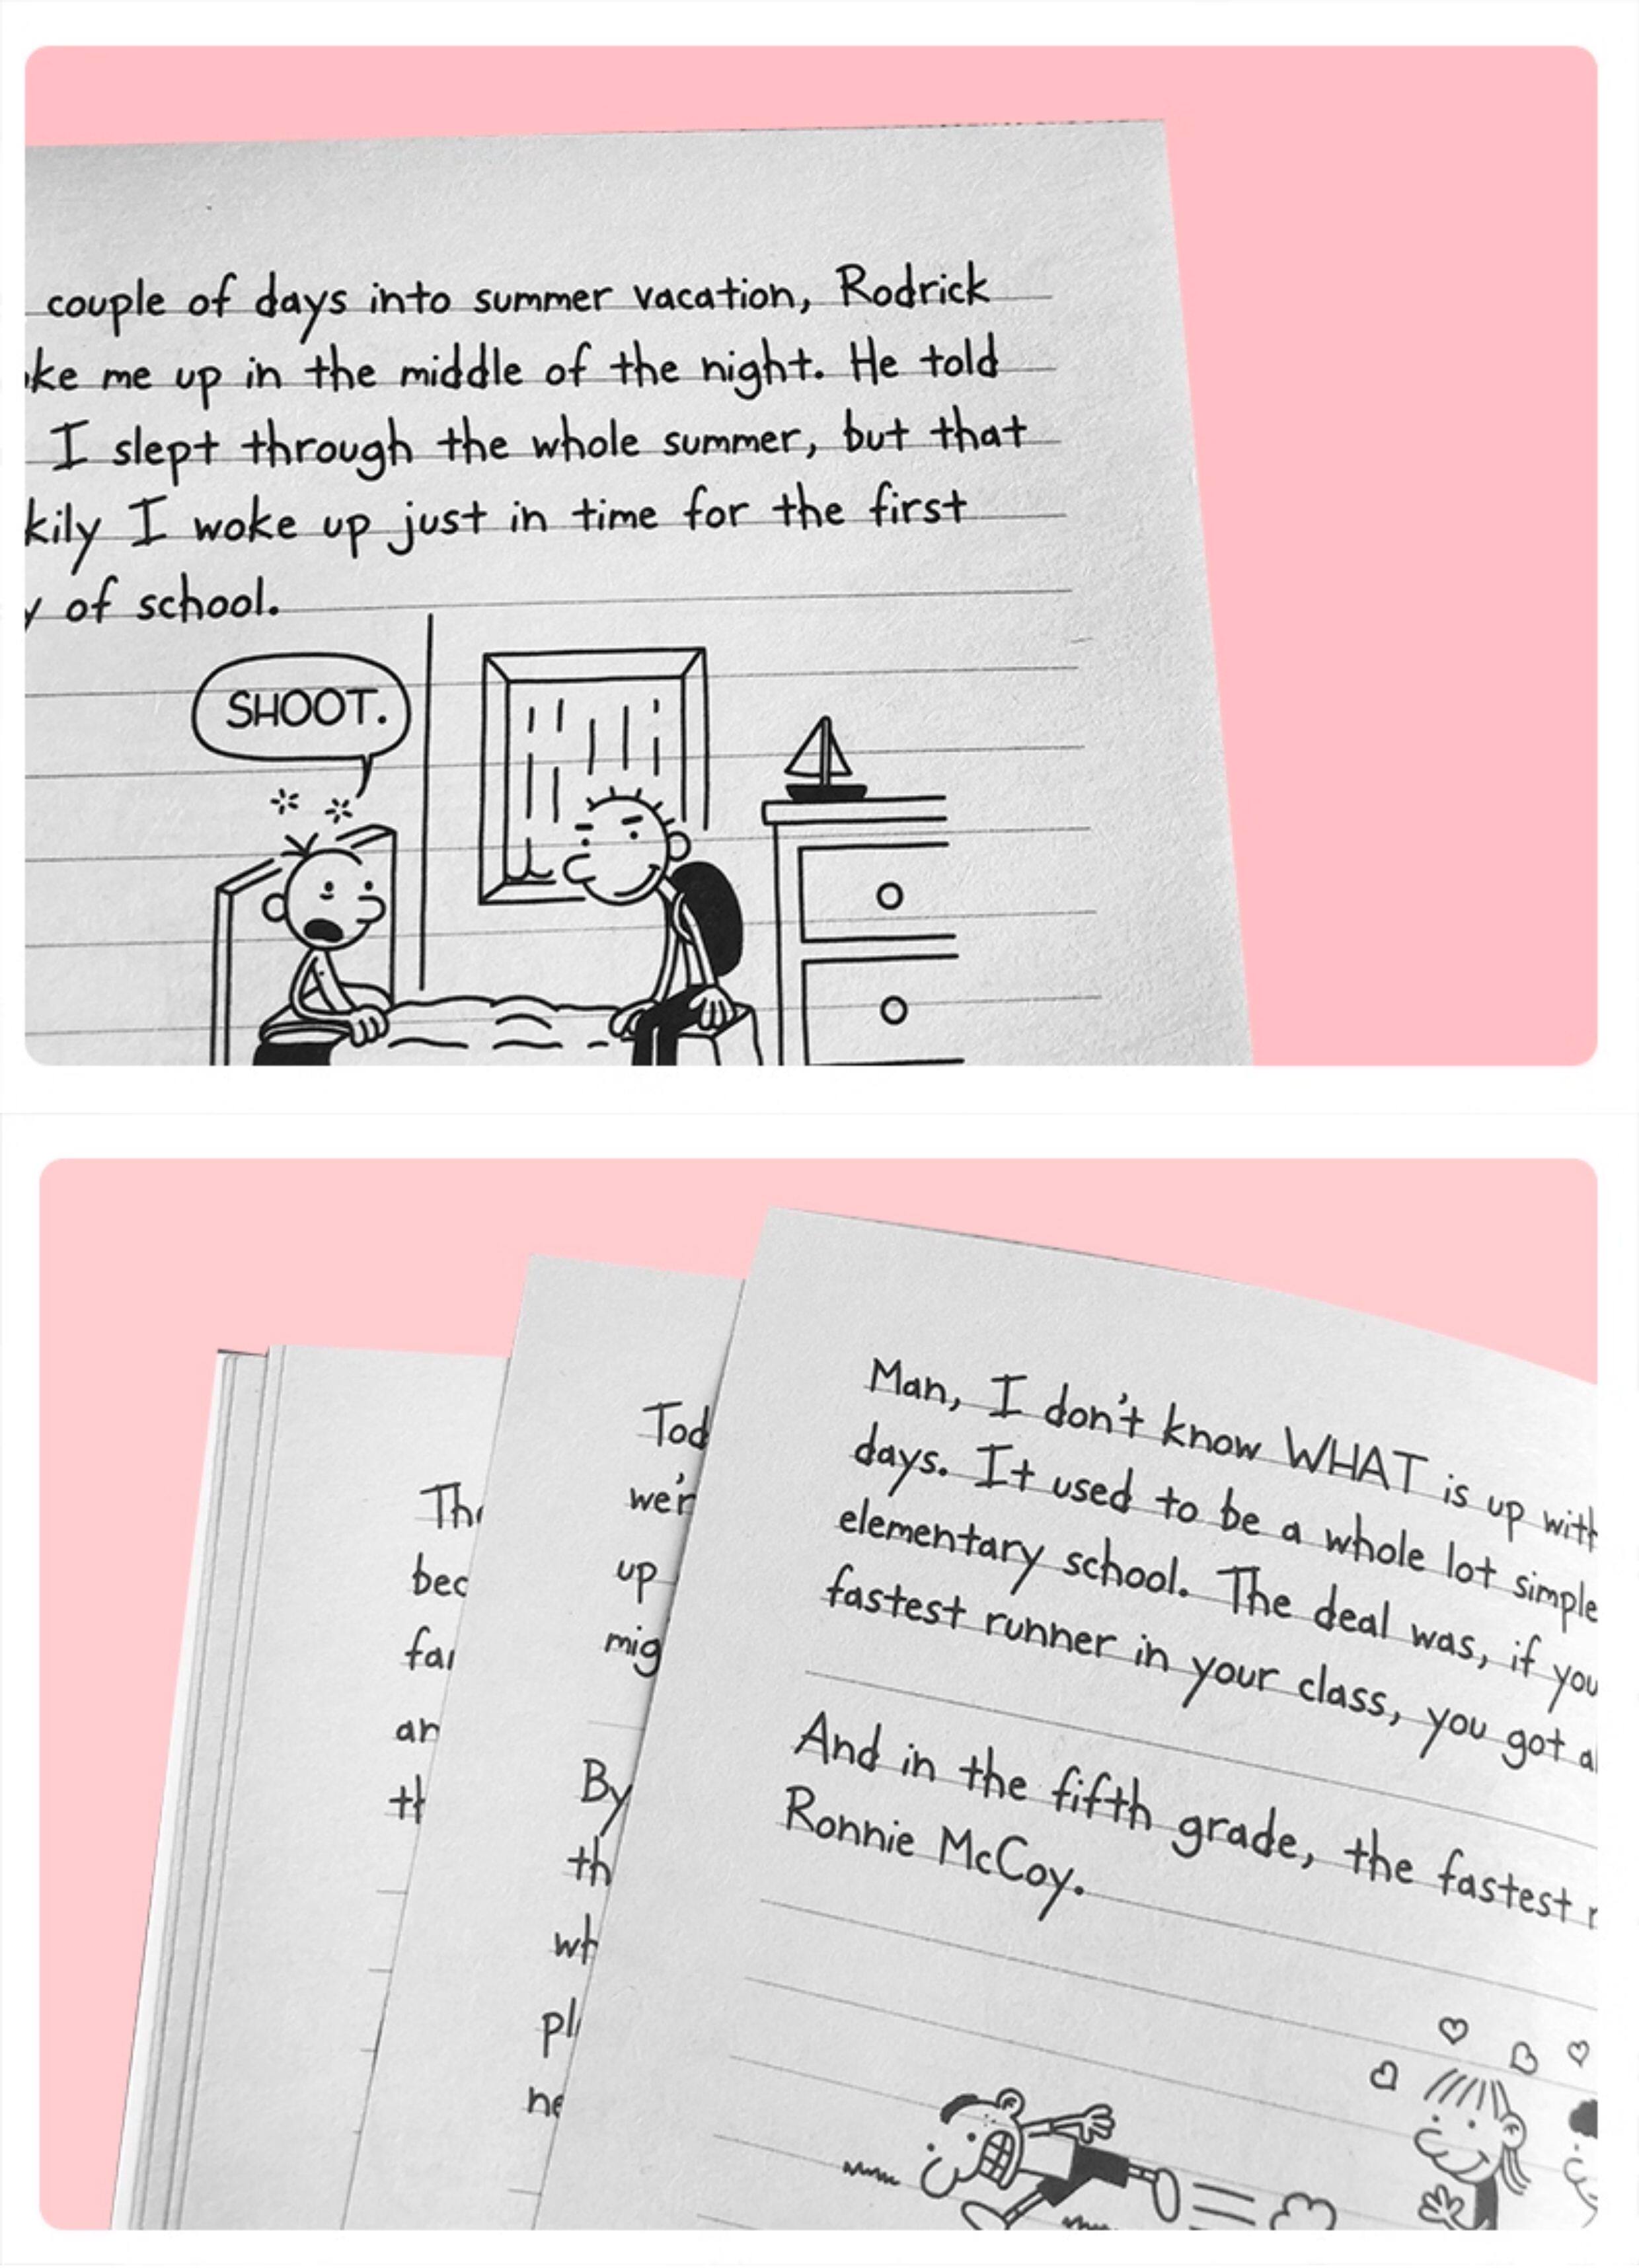 couple of days into summer vacation, Rodrick
me up in the middle of the night. He told
I slept through the whole summer, but that
I woke up just in time for the first
of school.
SHOOT.
Man, I don't know WHAT is up with
days. It used to be a whole lot simple
elementary school. The deal was, if you
fastest runner in your class, you got
And in the fifth grade, the fastest
Ronnie McCoy.
Tod
we'r
up
mig
By
th
wh
pl
ne
The
bec
far
an
th